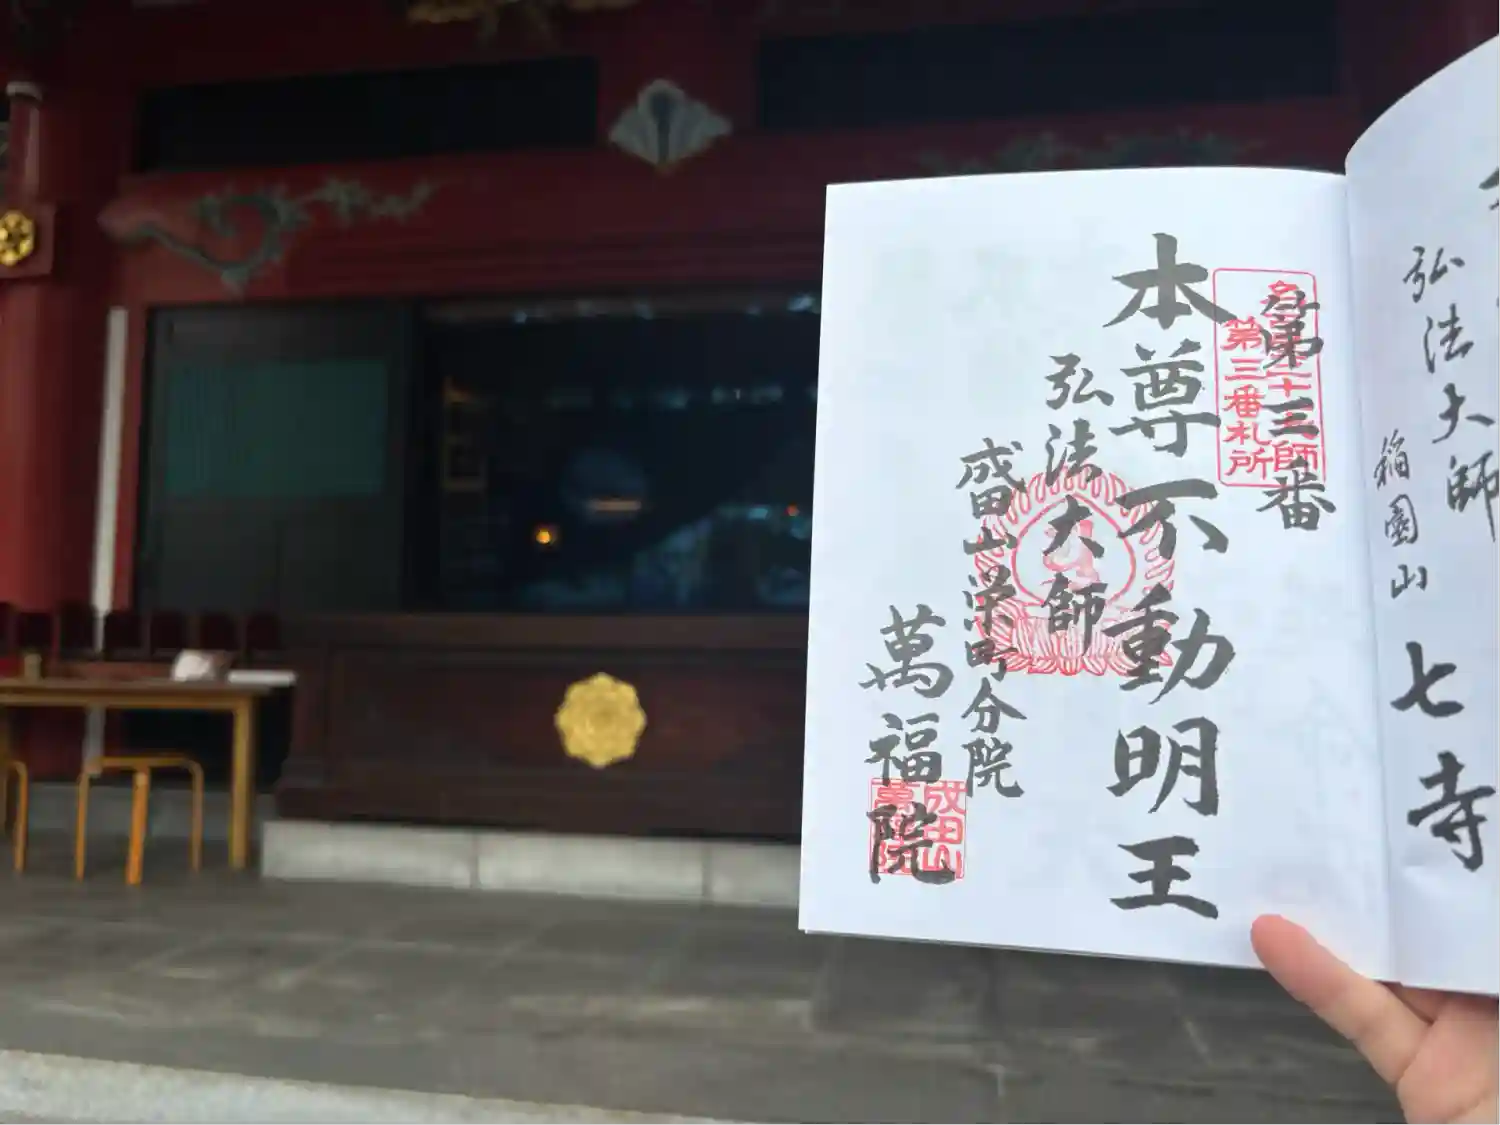 弘法大師
稲園山
七寺
第三番
第三番札所
本尊不動明王
弘法大師
成田山栄町分院
萬福院
成田山
萬福院